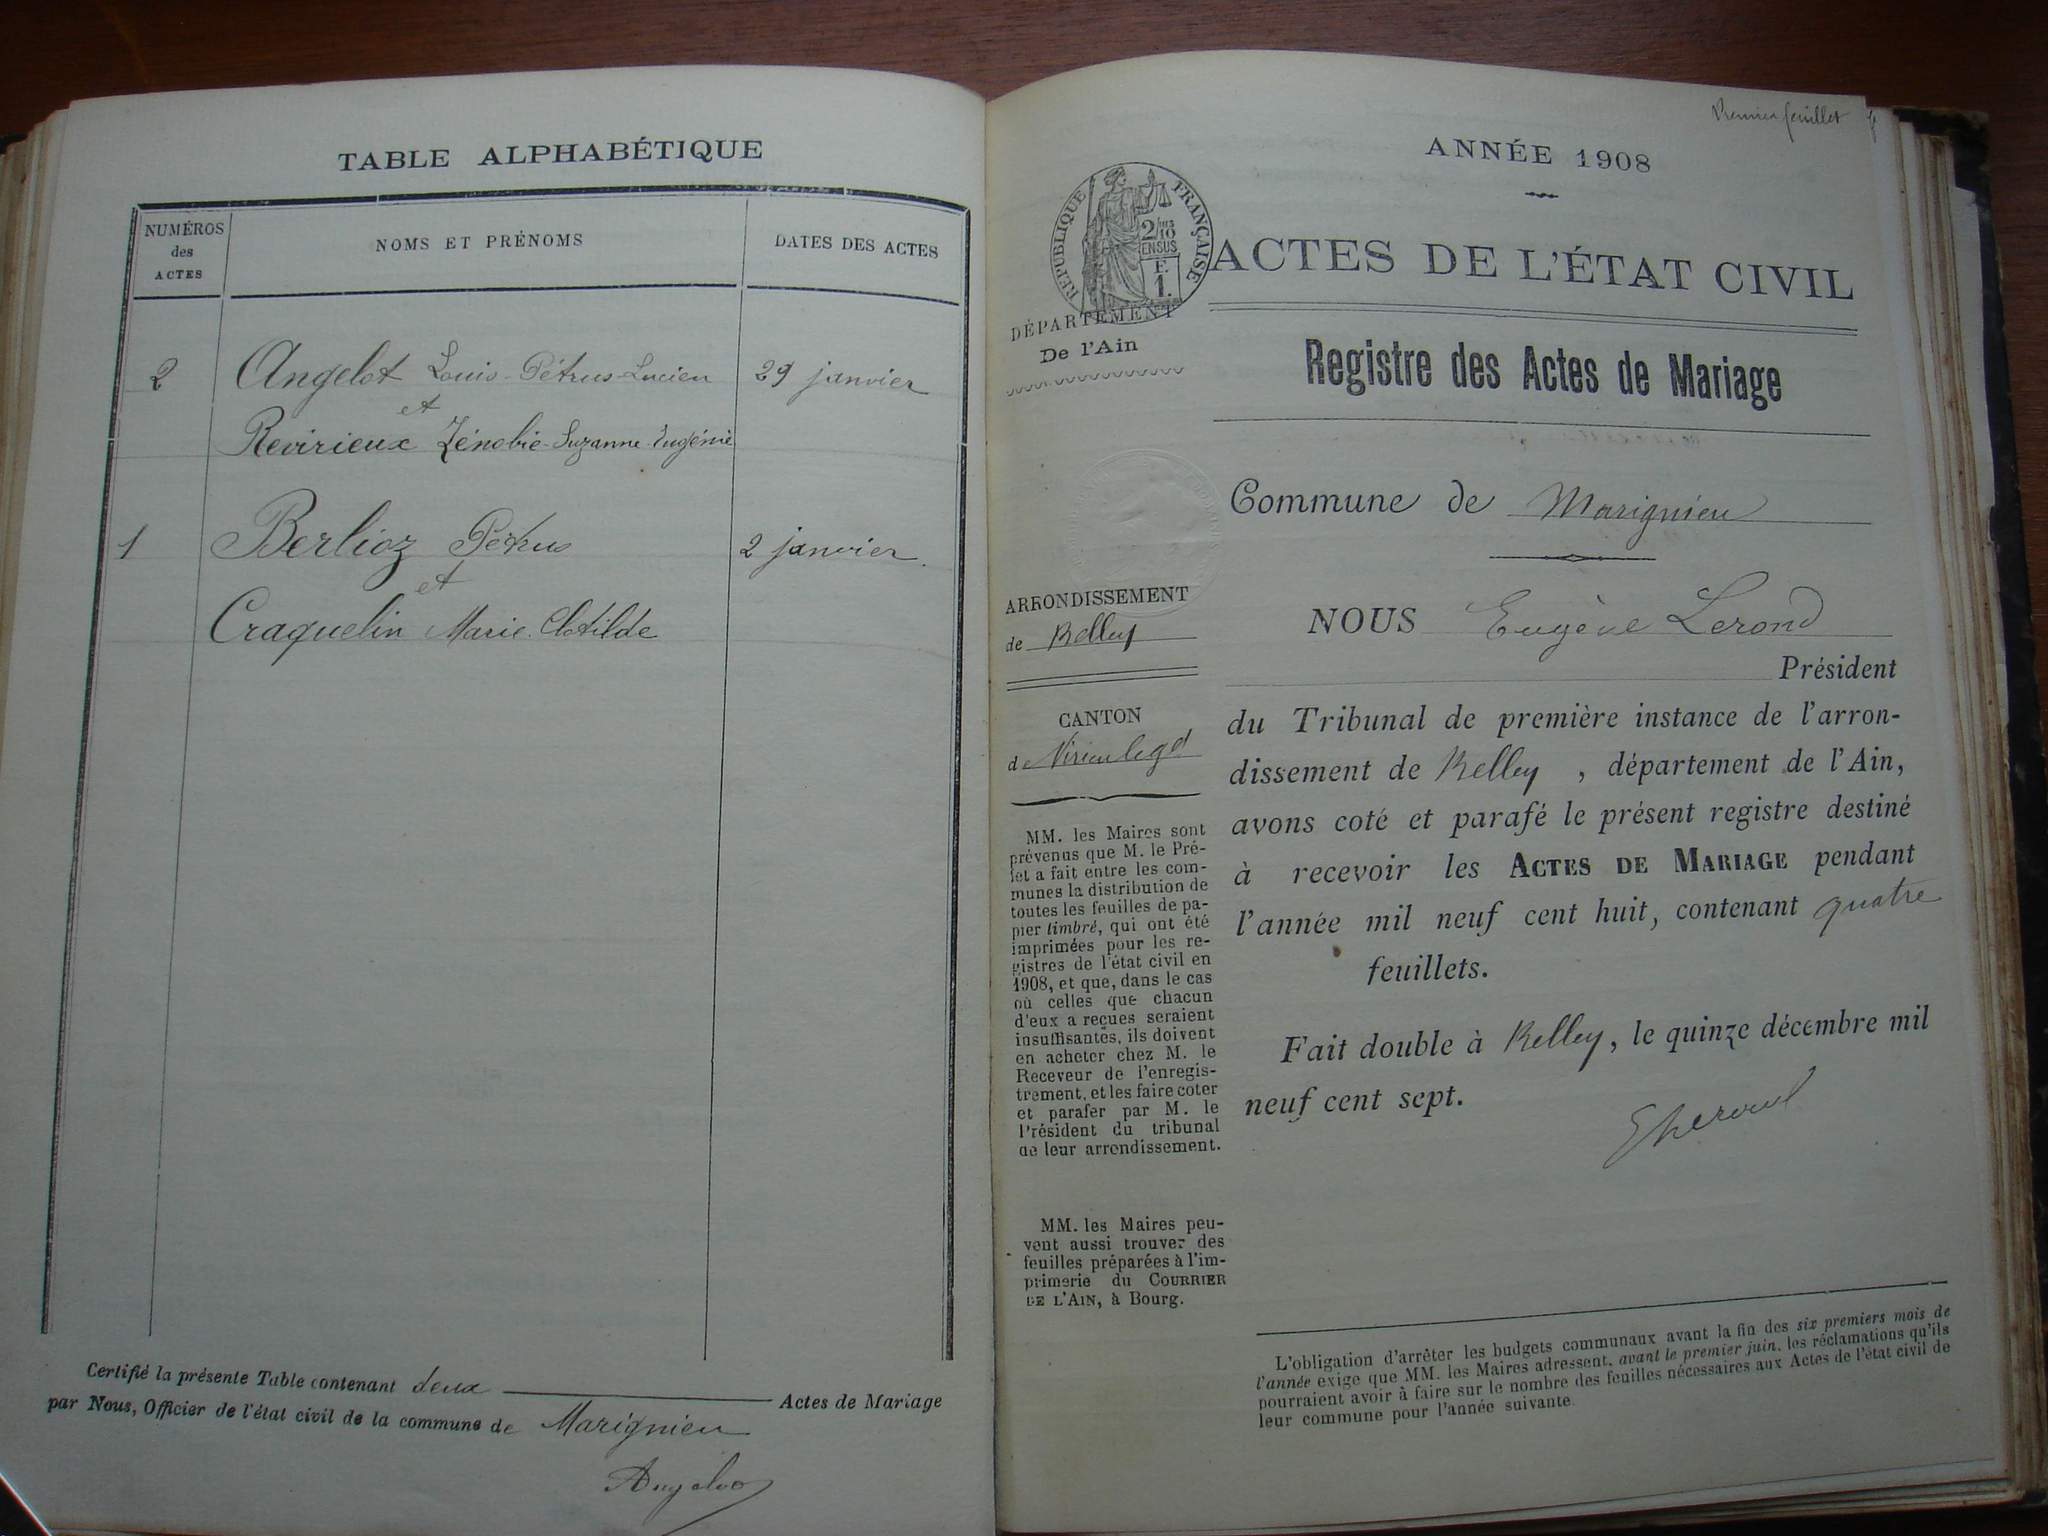 TABLE ALPHABÉTIQUE
NUMÉROS
des
ACTES
NOMS ET PRÉNOMS
DATES DES ACTES
2 Angelot Louis-Pétrus-Lucien 29 janvier
et
Revirieux Zénobie-Suzanne-Eugénie
1 Berlioz Pétrus 2 janvier.
et
Craquelin Marie-Clotilde
Certifié la présente Table contenant deux Actes de Mariage
par Nous, Officier de l'état civil de la commune de Marignieu
Premier feuillet
ANNÉE 1908
RÉPUBLIQUE FRANÇAISE
2/10
EN SUS
F.
1.
ACTES DE L'ÉTAT CIVIL
DÉPARTEMENT
De l'Ain
Registre des Actes de Mariage
Commune de Marignieu
ARRONDISSEMENT
de Belley
CANTON
de Virieu le gd
MM. les Maires sont
prévenus que M. le Pré-
fet a fait entre les com-
munes la distribution de
toutes les feuilles de pa-
pier timbré, qui ont été
imprimées pour les re-
gistres de l'état civil en
1908, et que, dans le cas
où celles que chacun
d'eux a reçues seraient
insuffisantes, ils doivent
en acheter chez M. le
Receveur de l'enregis-
trement, et les faire coter
et parafer par M. le
Président du tribunal
de leur arrondissement.
MM. les Maires peu-
vent aussi trouver des
feuilles préparées à l'im-
primerie du COURRIER
DE L'AIN, à Bourg.
NOUS Eugène Lerond
Président
du Tribunal de première instance de l'arron-
dissement de Belley, département de l'Ain,
avons coté et parafé le présent registre destiné
à recevoir les ACTES DE MARIAGE pendant
l'année mil neuf cent huit, contenant quatre
feuillets.
Fait double à Belley, le quinze décembre mil
neuf cent sept.
L'obligation d'arrêter les budgets communaux avant la fin des six premiers mois de
l'année exige que MM. les Maires adressent, avant le premier juin, les réclamations qu'ils
pourraient avoir à faire sur le nombre des feuilles nécessaires aux Actes de l'état civil de
leur commune pour l'année suivante.